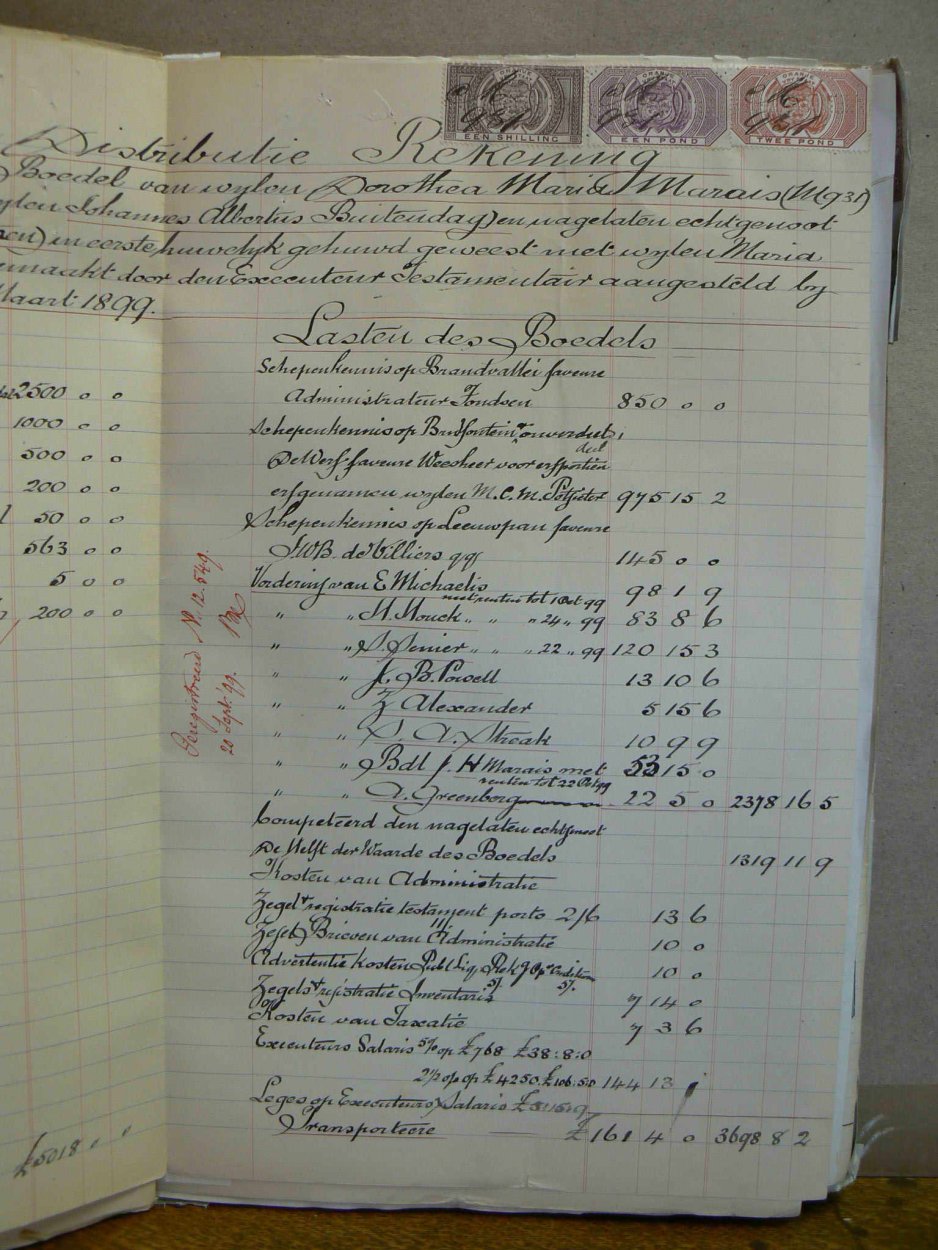 ORANJE
EEN SHILLING
ORANJE
EEN POND
ORANJE
TWEE POND
Distributie Rekening
Boedel van wylen Dorothea Maria Marais (M931)
Johannes Albertus Buitendag) en nagelaten echtgenoot
in eerste huwelyk gehuwd geweest met wylen Maria
door den Executeur Testamentair aangesteld by
Maart 1899.
2500 0 0
1000 0 0
500 0 0
200 0 0
50 0 0
563 0 0
5 0 0
200 0 0
£5018 " "
Geregistreerd No. 12.549.
20 Sept. 99.
Lasten des Boedels
Schepenkennis op Brandvallei faveure
Administrateur Fondsen 850 0 0
Schepenkennis op Bredfontein & onverdeeld
deel
De Werf faveure Weesheer voor erfportien
erfgenamen wylen M. C. M. Potgieter 975 15 2
Schepenkennis op Leeuwpan faveure
J. W. B. de Villiers qq 145 0 0
Vordering van E Michaelis 98 1 9
met renten tot 1 Oct 99
" " H. Houck " " " 24 " 99 83 8 6
" " S. Senier " " " 22 " 99 120 15 3
" " J. B. Powell 13 10 6
" " Z Alexander 5 15 6
" " S. A. Streak 10 9 9
" " Bdl J. H Marais met 53 15 0
renten tot 22 Oct 99
" " A. Greenberg 22 5 0 2378 16 5
Competeerd den nagelaten echtgenoot
De Helft der Waarde des Boedels 1319 11 9
Kosten van Administratie
Zegel & registratie testament porto 2/6 13 6
Zegel Brieven van Administratie 10 0
Advertentie kosten Publ Liq. Rek 10 0
5/. 5/.
Zegels & registratie Inventaris 7 14 0
Kosten van Taxatie 7 3 6
Executeurs Salaris 5% op £768 £38:8:0
2½ % op £4250 £106:5:0 144 13
Leges op Executeurs Salaris
Transporteere £161 4 0 3698 8 2